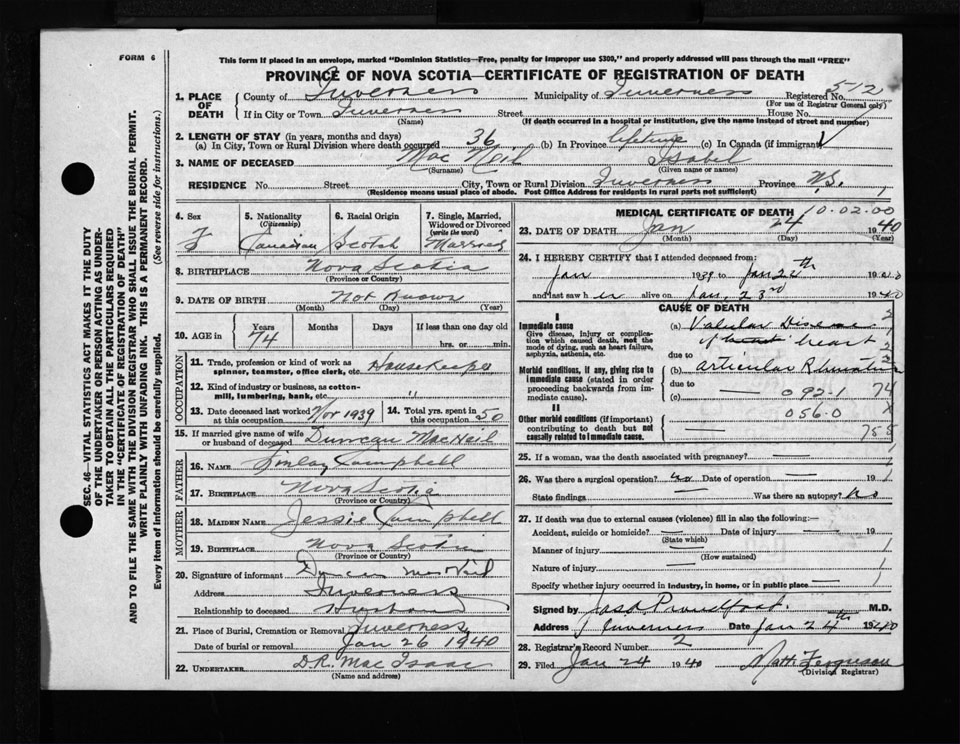 FORM 6
This form if placed in an envelope, marked "Dominion Statistics—Free, penalty for improper use $300," and properly addressed will pass through the mail "FREE"
PROVINCE OF NOVA SCOTIA—CERTIFICATE OF REGISTRATION OF DEATH
512
1. PLACE OF DEATH
County of Inverness Municipality of Inverness Registered No.
(For use of Registrar General only)
If in City or Town Inverness Street House No.
(Name) (If death occurred in a hospital or institution, give the name instead of street and number)
2. LENGTH OF STAY (in years, months and days)
(a) In City, Town or Rural Division where death occurred 36 (b) In Province lifetime (c) In Canada (if immigrant)
3. NAME OF DECEASED Mac Neil Isabel
(Surname) (Given name or names)
RESIDENCE No. Street City, Town or Rural Division Inverness Province N.S.
(Residence means usual place of abode. Post Office Address for residents in rural parts not sufficient)
4. Sex F
5. Nationality (Citizenship) Canadian
6. Racial Origin Scotch
7. Single, Married, Widowed or Divorced (write the word) Married
8. BIRTHPLACE Nova Scotia
(Province or Country)
9. DATE OF BIRTH Not Known
(Month) (Day) (Year)
10. AGE in Years Months Days If less than one day old
74 hrs. or min.
OCCUPATION
11. Trade, profession or kind of work as spinner, teamster, office clerk, etc. Housekeeper
12. Kind of industry or business, as cotton-mill, lumbering, bank, etc.
13. Date deceased last worked at this occupation Nov 1939
14. Total yrs. spent in this occupation 50
15. If married give name of wife or husband of deceased Duncan MacNeil
FATHER
16. NAME Finlay Campbell
17. BIRTHPLACE Nova Scotia
(Province or Country)
MOTHER
18. MAIDEN NAME Jessie Campbell
19. BIRTHPLACE Nova Scotia
(Province or Country)
20. Signature of informant Duncan MacNeil
Address Inverness
Relationship to deceased Husband
21. Place of Burial, Cremation or Removal Inverness
Date of burial or removal Jan 26 1940
22. UNDERTAKER D.R. MacIsaac
(Name and address)
MEDICAL CERTIFICATE OF DEATH 10.02.00
23. DATE OF DEATH Jan 24 1940
(Month) (Day) (Year)
24. I HEREBY CERTIFY that I attended deceased from:
Jan 1939 to Jan 24th 1940
and last saw her alive on Jan. 23rd 1940
CAUSE OF DEATH
I
Immediate cause
Give disease, injury or complication which caused death, not the mode of dying, such as heart failure, asphyxia, asthenia, etc.
(a) Valvular Disease
of heart
due to
Morbid conditions, if any, giving rise to immediate cause (stated in order proceeding backwards from immediate cause).
(b) articular Rheumatism
due to
(c) 092-1 74
056.0
II
Other morbid conditions (if important) contributing to death but not causally related to immediate cause.
25. If a woman, was the death associated with pregnancy? —
26. Was there a surgical operation? no Date of operation — 19
State findings — Was there an autopsy? no
27. If death was due to external causes (violence) fill in also the following:—
Accident, suicide or homicide? — Date of injury — 19
(State which)
Manner of injury —
(How sustained)
Nature of injury —
Specify whether injury occurred in industry, in home, or in public place —
Signed by Jas A Proudfoot M.D.
Address Inverness Date Jan 24th 1940
28. Registrar's Record Number 2
29. Filed Jan 24 1940 Matt. Ferguson
(Division Registrar)
SEC. 46—VITAL STATISTICS ACT MAKES IT THE DUTY
OF THE UNDERTAKER OR PERSON ACTING AS UNDER-
TAKER TO OBTAIN ALL THE PARTICULARS REQUIRED
IN THE "CERTIFICATE OF REGISTRATION OF DEATH"
AND TO FILE THE SAME WITH THE DIVISION REGISTRAR WHO SHALL ISSUE THE BURIAL PERMIT.
WRITE PLAINLY WITH UNFADING INK. THIS IS A PERMANENT RECORD.
Every item of information should be carefully supplied. (See reverse side for instructions.)